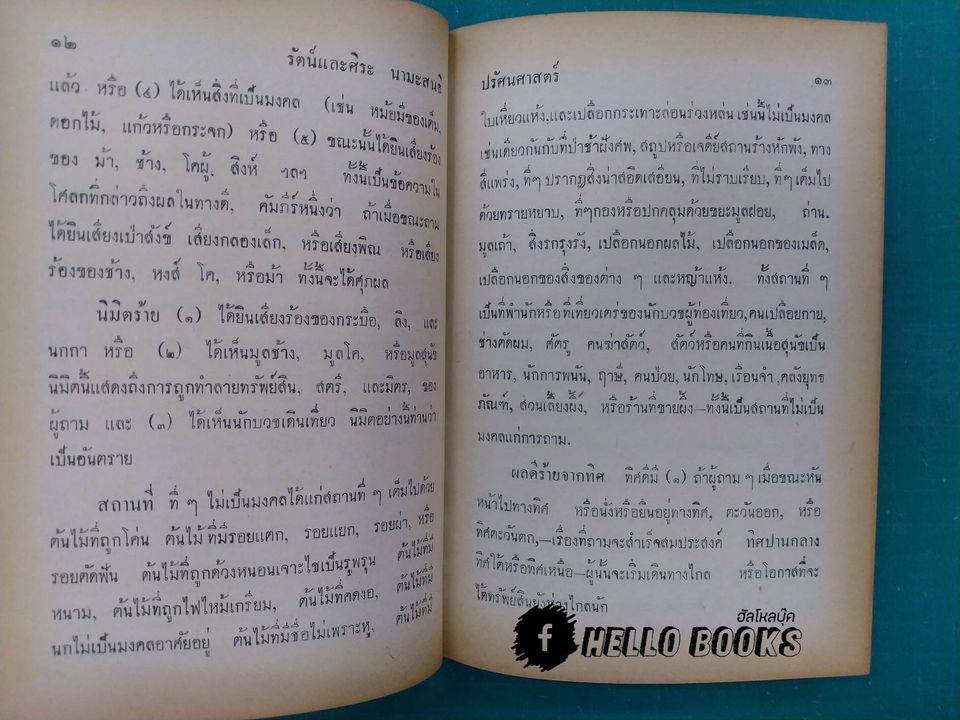 ๑๒
รัตน์และศิระ นามะสนธิ
แล้ว หรือ (๔) ได้เห็นสิ่งที่เป็นมงคล (เช่น หม้อมีของเต็ม,
ดอกไม้, แก้วหรือกระจก) หรือ (๕) ขณะนั้นได้ยินเสียงร้อง
ของ ม้า, ช้าง, โคผู้, สิงห์ ฯลฯ ทั้งนี้เป็นข้อความใน
โศลกที่กล่าวถึงผลในทางดี, คัมภีร์หนึ่งว่า ถ้าเมื่อขณะถาม
ได้ยินเสียงเป่าสังข์ เสียงกลองเล็ก, หรือเสียงพิณ หรือเสียง
ร้องของช้าง, หงส์ โค, หรือม้า ทั้งนี้จะได้ศุภผล
นิมิตร้าย (๑) ได้ยินเสียงร้องของกระบือ, ลิง, และ
นกกา หรือ (๒) ได้เห็นมูลช้าง, มูลโค, หรือมูลสุนัข
นิมิตนี้แสดงถึงการถูกทำลายทรัพย์สิน, สตรี, และมิตร, ของ
ผู้ถาม และ (๓) ได้เห็นนักบวชเดินเที่ยว นิมิตอย่างนี้ท่านว่า
เป็นอันตราย
สถานที่ ที่ ๆ ไม่เป็นมงคลได้แก่สถานที่ ๆ เต็มไปด้วย
ต้นไม้ที่ถูกโค่น ต้นไม้ที่มีรอยแตก, รอยแยก, รอยผ่า, หรือ
รอยตัดฟัน ต้นไม้ที่ถูกด้วงหนอนเจาะไชเป็นรูพรุน ต้นไม้ที่มี
หนาม, ต้นไม้ที่ถูกไฟไหม้เกรียม, ต้นไม้ที่คดงอ, ต้นไม้ที่มี
นกไม่เป็นมงคลอาศัยอยู่ ต้นไม้ที่มีชื่อไม่เพราะหู, ต้นไม้ที่มี
ปรัศนศาสตร์
๑๓
ใบเหี่ยวแห้ง,และเปลือกกระเทาะล่อนร่วงหล่น เช่นนี้ไม่เป็นมงคล
เช่นเดียวกันกับที่ป่าช้าฝังศพ, สถูปหรือเจดีย์สถานร้างหักพัง, ทาง
สี่แพร่ง, ที่ๆ ปรากฏสิ่งน่าสอิดเสอียน, ที่ไม่ราบเรียบ, ที่ๆ เต็มไป
ด้วยทรายหยาบ, ที่ๆกองหรือปกคลุมด้วยขยะมูลฝอย, ถ่าน.
มูลเถ้า, สิ่งรกรุงรัง, เปลือกนอกผลไม้, เปลือกนอกของเมล็ด,
เปลือกนอกของสิ่งของต่าง ๆ และหญ้าแห้ง. ทั้งสถานที่ ๆ
เป็นที่พำนักหรือที่เที่ยวเตร่ของนักบวชผู้ท่องเที่ยว, คนเปลือยกาย,
ช่างตัดผม, ศัตรู คนฆ่าสัตว์, สัตว์หรือคนที่กินเนื้อสุนัขเป็น
อาหาร, นักการพนัน, ฤาษี, คนป่วย, นักโทษ, เรือนจำ ,คลังยุทธ
ภัณฑ์, สวนเลี้ยงผึ้ง, หรือร้านที่ขายผึ้ง—ทั้งนี้เป็นสถานที่ไม่เป็น
มงคลแก่การถาม.
ผลดีร้ายจากทิศ ทิศดีมี (๑) ถ้าผู้ถาม ๆ เมื่อขณะหัน
หน้าไปทางทิศ หรือนั่งหรือยืนอยู่ทางทิศ, ตะวันออก, หรือ
ทิศตะวันตก,—เรื่องที่ถามจะสำเร็จสมประสงค์ ทิศปานกลาง
ทิศใต้หรือทิศเหนือ—ผู้นั้นจะเริ่มเดินทางไกล หรือโอกาสที่จะ
ได้ทรัพย์สินยังห่างไกลนัก
ฮัลโหลบุ๊ค
f HELLO BOOKS